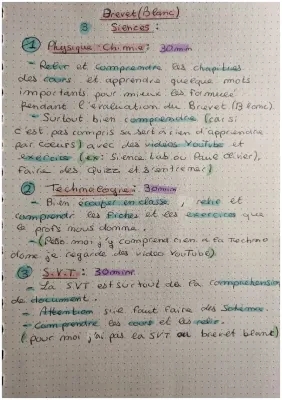 Brevet (Blanc)
3 Siences :
1 Physique-Chimie : 30min
- Relir et comprendre les chapitres
des cours et apprendre quelque mots
importants pour mieux les formulee
Pendant l'évaluation du Brevet (Blanc)
- Surtout bien comprendre (car si
c'est pas compris sa sert à rien d'apprendre
par cœurs) avec des vidéos YouTube et
exercice (ex : Sience Lab ou Paul Olivier),
faire des Quizz et s'entrainer)
2 Technologie : 30min
- Bien écouter en classe, relir et
comprendre les fiches et les exercices que
le profs nous donne.
- (Perso moi j'y comprend rien a la Techno
donc je regarde des video YouTube).
3 S.V.T : 30min
- La SVT est surtout de la compréhension
de document.
- Attention sur faut faire des Schémas.
- Comprendre les cours et les relir.
(pour moi j'ai pas la SVT au brevet blanc)